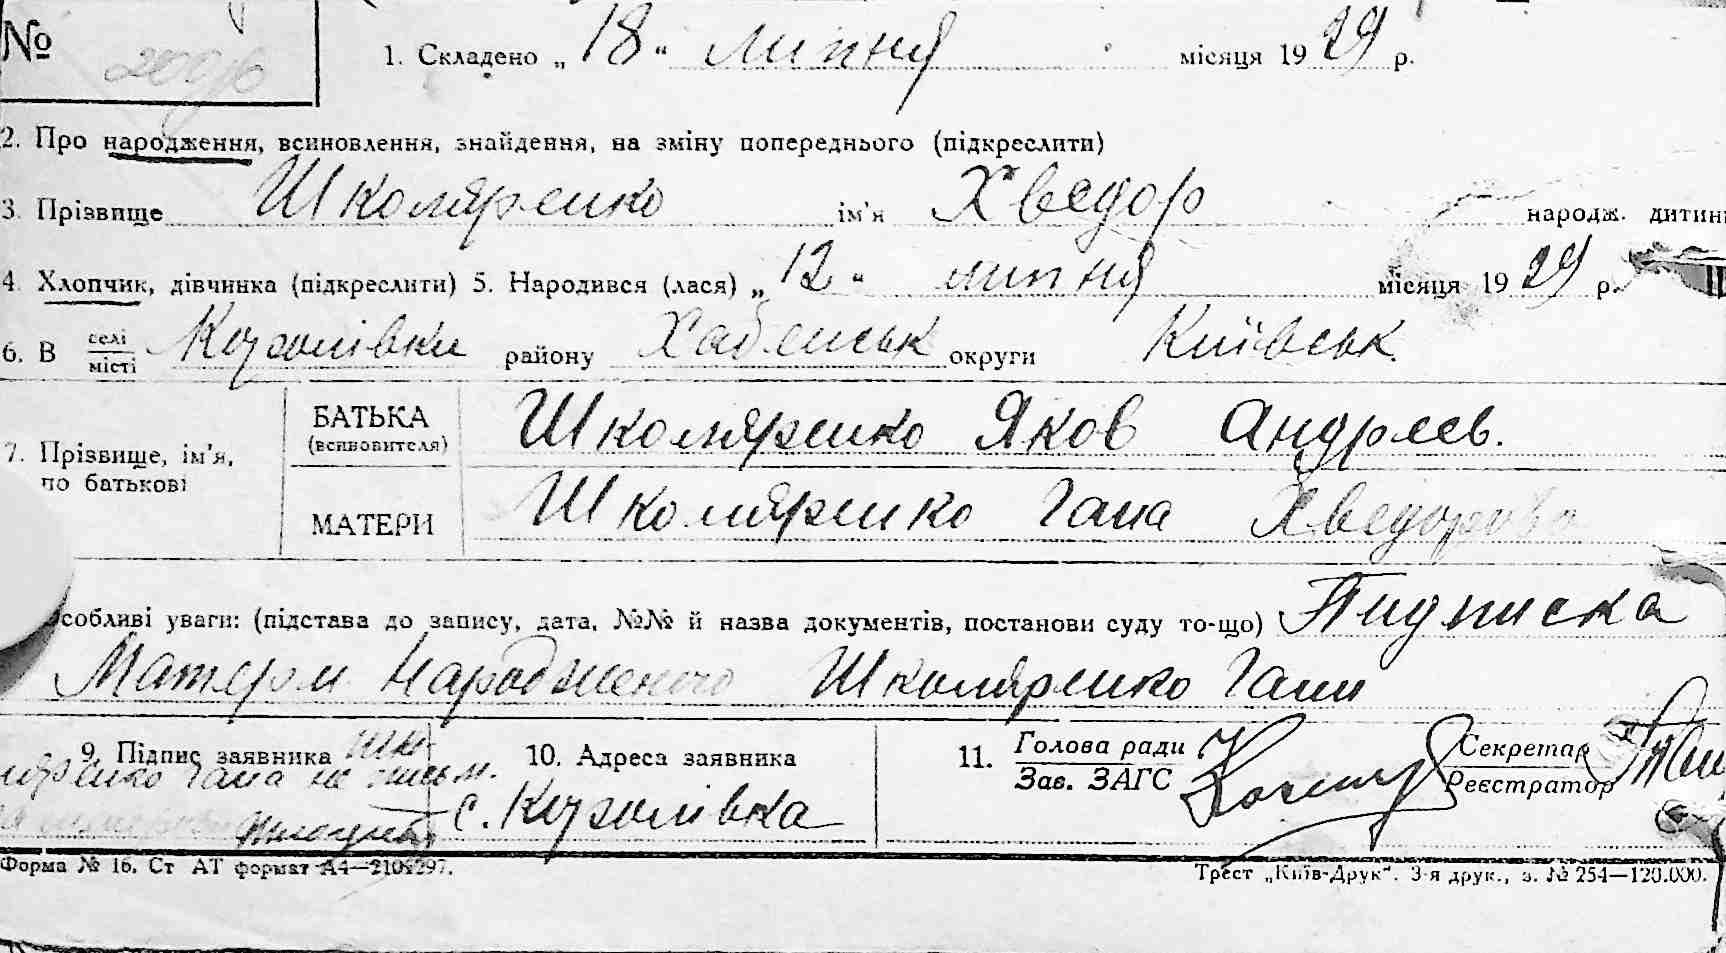 №
1. Складено „18“ липня місяця 1929 р.
2. Про народження, всиновлення, знайдення, на зміну попереднього (підкреслити)
3. Прізвище Школяренко ім'я Хведор народж. дитини
4. Хлопчик, дівчинка (підкреслити) 5. Народився (лася) „12“ липня місяця 1929 р.
6. В селі/місті Коголівки району Хабенськ округи Київськ
7. Прізвище, ім'я, по батькові
БАТЬКА (всиновителя) Школяренко Яков Андреев.
МАТЕРИ Школяренко Гана Хведорова
собливі уваги: (підстава до запису, дата, №№ й назва документів, постанови суду то-що) Пидписка
Матери народженого Школяренко Гани
9. Підпис заявника Шко-
ляренко Гана не письм.
10. Адреса заявника
с. Коголівка
11. Голова ради / Зав. ЗАГС
Секретар / Реєстратор
Форма № 16. Ст АТ формат А4—210×297.
Трест „Київ-Друк“. 3-я друк., з. № 254—120.000.